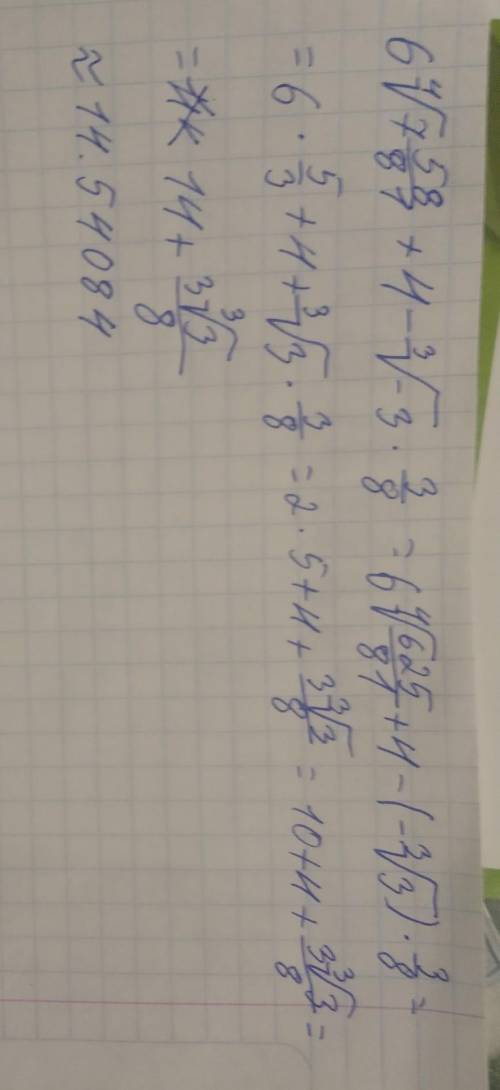 6∜7 58/81 + 4 - ∛-3 · 3/8 = 6∜625/81 + 4 - (-∛3) · 3/8 =
= 6 · 5/3 + 4 + ∛3 · 3/8 = 2 · 5 + 4 + 3∛3/8 = 10 + 4 + 3∛3/8 =
= 14 + 3∛3/8
≈ 14.54084